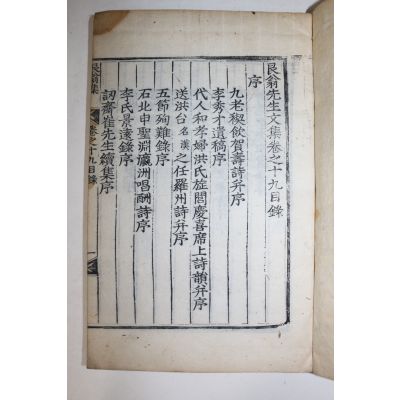 艮翁先生文集卷之十九目錄
序
九老稧飮賀壽詩幷序
李秀才遺稿序
代人和孝婦洪氏旌閭慶喜席上詩韻幷序
送洪台名漢之任羅州詩幷序
五節殉難錄序
石北申聖淵瀛洲唱酬詩序
李氏景遠錄序
訒齋崔先生續集序
艮翁集
卷之十九目錄